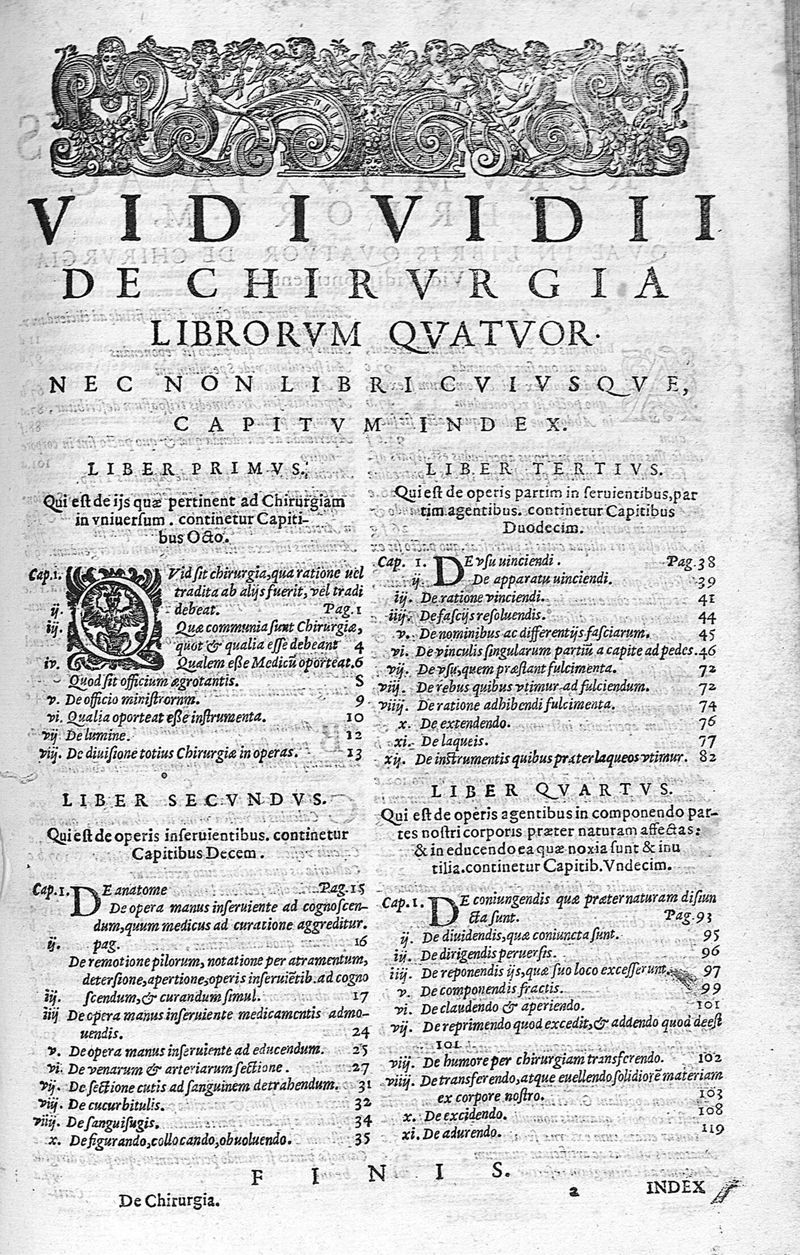 VIDI VIDII
DE CHIRVRGIA
LIBRORVM QVATVOR.
NEC NON LIBRI CVIVSQVE,
CAPITVM INDEX.
LIBER PRIMVS.
Qui est de ijs quæ pertinent ad Chirurgiam
in vniuersum . continetur Capiti-
bus Octo.
Cap.i. QVid sit chirurgia, qua ratione uel
tradita ab alijs fuerit, vel tradi
ij. debeat. Pag.1
iij. Quæ communia sunt Chirurgiæ,
quot & qualia esse debeant 4
iv. Qualem esse Medicū oporteat. 6
Quod sit officium ægrotantis. 8
v. De officio ministrorum. 9
vi. Qualia oporteat esse instrumenta. 10
vij De lumine. 12
viij. De diuisione totius Chirurgiæ in operas. 13
LIBER SECVNDVS.
Qui est de operis inseruientibus. continetur
Capitibus Decem .
Cap.1. DE anatome Pag.15
De opera manus inseruiente ad cognoscen-
dum, quum medicus ad curatione aggreditur.
ij. pag. 16
De remotione pilorum, notatione per atramentum,
detersione, apertione, operis inseruiētib. ad cogno
iij. scendum, & curandum simul. 17
iiij De opera manus inseruiente medicamentis admo-
uendis. 24
v. De opera manus inseruiente ad educendum. 25
vi. De venarum & arteriarum sectione . 27
vij. De sectione cutis ad sanguinem detrahendum. 31
viij. De cucurbitulis. 32
viiij. De sanguisugis. 34
x. De figurando, collocando, obuoluendo. 35
LIBER TERTIVS.
Qui est de operis partim in seruientibus, par
tim agentibus. continetur Capitibus
Duodecim.
Cap. 1. DE vsu uinciendi . Pag.38
ij. De apparatu uinciendi. 39
iij. De ratione vinciendi. 41
iiij. De fascijs resoluendis. 44
v. De nominibus ac differentijs fasciarum. 45
vi. De vinculis singularum partiū a capite ad pedes. 46
vij. De vsu, quem præstant fulcimenta. 72
viij. De rebus quibus vtimur ad fulciendum. 72
viiij. De ratione adhibendi fulcimenta. 74
x. De extendendo. 76
xi. De laqueis. 77
xij. De instrumentis quibus præter laqueos vtimur. 82
LIBER QVARTVS.
Qui est de operis agentibus in componendo par-
tes nostri corporis præter naturam affectas:
& in educendo ea quæ noxia sunt & inu
tilia. continetur Capitib. Vndecim.
Cap.1. DE coniungendis quæ præter naturam disiun
cta sunt. Pag.93
ij. De diuidendis, quæ coniuncta sunt. 95
iij. De dirigendis peruersis. 96
iiij. De reponendis ijs, quæ suo loco excesserunt. 97
v. De componendis fractis. 99
vi. De claudendo & aperiendo. 101
vij. De reprimendo quod excedit, & addendo quod deest
101
viij. De humore per chirurgiam transferendo. 102
viiij. De transferendo, atque euellendo solidiorē materiam
ex corpore nostro. 103
x. De excidendo. 108
xi. De adurendo. 119
FINIS.
De Chirurgia. a INDEX